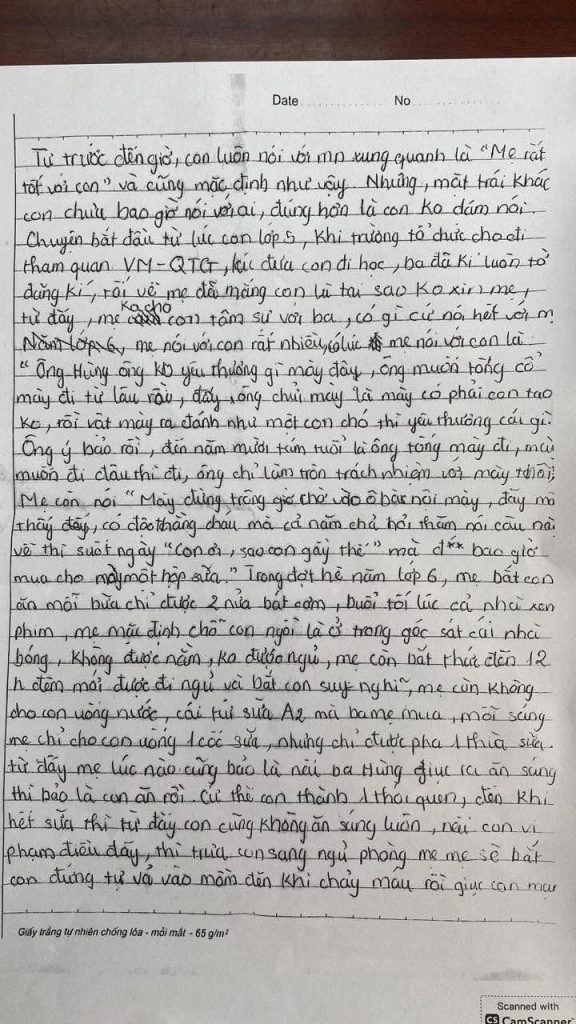 Date No
Từ trước đến giờ, con luôn nói với mn xung quanh là "Mẹ rất
tốt với con" và cũng mặc định như vậy. Nhưng, mặt trái khác
con chưa bao giờ nói với ai, đúng hơn là con ko dám nói.
Chuyện bắt đầu từ lúc con lớp 5, khi trường tổ chức cho đi
tham quan VM-QTG, lúc đưa con đi học, ba đã kí luôn tờ
đăng kí, rồi về mẹ đã mắng con là tại sao ko xin mẹ,
từ đấy, mẹ ko cho con tâm sự với ba, có gì cứ nói hết với m
Năm lớp 6, mẹ nói với con rất nhiều, có lúc mẹ nói với con là
"Ông Hùng ông ko yêu thương gì mày đâu, ông muốn tống cổ
mày đi từ lâu rồi, đấy, ông chửi mày là mày có phải con tao
ko, rồi vất mày ra đánh như một con chó thì yêu thương cái gì.
Ông ý bảo rồi, đến năm mười tám tuổi là ông tống mày đi, mày
muốn đi đâu thì đi, ông chỉ làm tròn trách nhiệm với mày thôi"
Mẹ còn nói "Mày đừng trông giờ chờ vào ô bà nội mày, đấy mà
thấy đấy, có đứa thằng cháu mà cả năm chả hỏi thăm nói câu nào
về thì suốt ngày "Con ơi, sao con gầy thế" mà đ** bao giờ
mua cho mày một hộp sữa." Trong đợt hè năm lớp 6, mẹ bắt con
ăn mỗi bữa chỉ được 2 nửa bát cơm, buổi tối lúc cả nhà xem
phim, mẹ mặc định chỗ con ngồi là ở trong góc sát cái nhà
bóng, không được nằm, ko được ngủ, mẹ còn bắt thức đến 12
h đêm mới được đi ngủ và bắt con suy nghĩ, mẹ còn không
cho con uống nước, cái túi sữa A2 mà ba mẹ mua, mỗi sáng
mẹ chỉ cho con uống 1 cốc sữa, nhưng chỉ được pha 1 thìa sữa.
từ đấy mẹ lúc nào cũng bảo là nếu ba Hùng giục ăn sáng
thì bảo là con ăn rồi. Cứ thế con thành 1 thói quen, đến khi
hết sữa thì từ đấy con cũng không ăn sáng luôn, nếu con vi
phạm điều đấy, thì trưa con sang ngủ phòng mẹ mẹ sẽ bắt
con đứng tự vả vào mồm đến khi chảy máu rồi giục con
Giấy trắng tự nhiên chống lóa - mỏi mắt - 65 g/m²
Scanned with
CS CamScanner